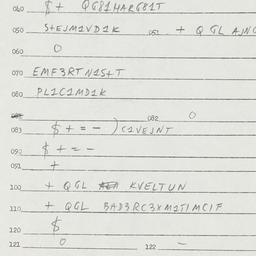 040 $+ QG81HARG81T
050 S+EJM1VD1K 051 + QGL AJNC
060 O
070 EMF3RTN1S+T
080 PL1C1MD1K
082 O
083 $+=-)C1VEJNT
090 $+=-
091 +
100 + QGL KVELTUN
110 + QGL BAD3RC3XM1T1MCIF
120 $
121 O 122 -